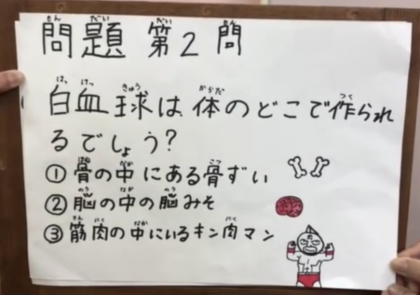 問題 第2問
白血球は体のどこで作られ
るでしょう?
①骨の中にある骨ずい
②脳の中の脳みそ
③筋肉の中にいるキン肉マン